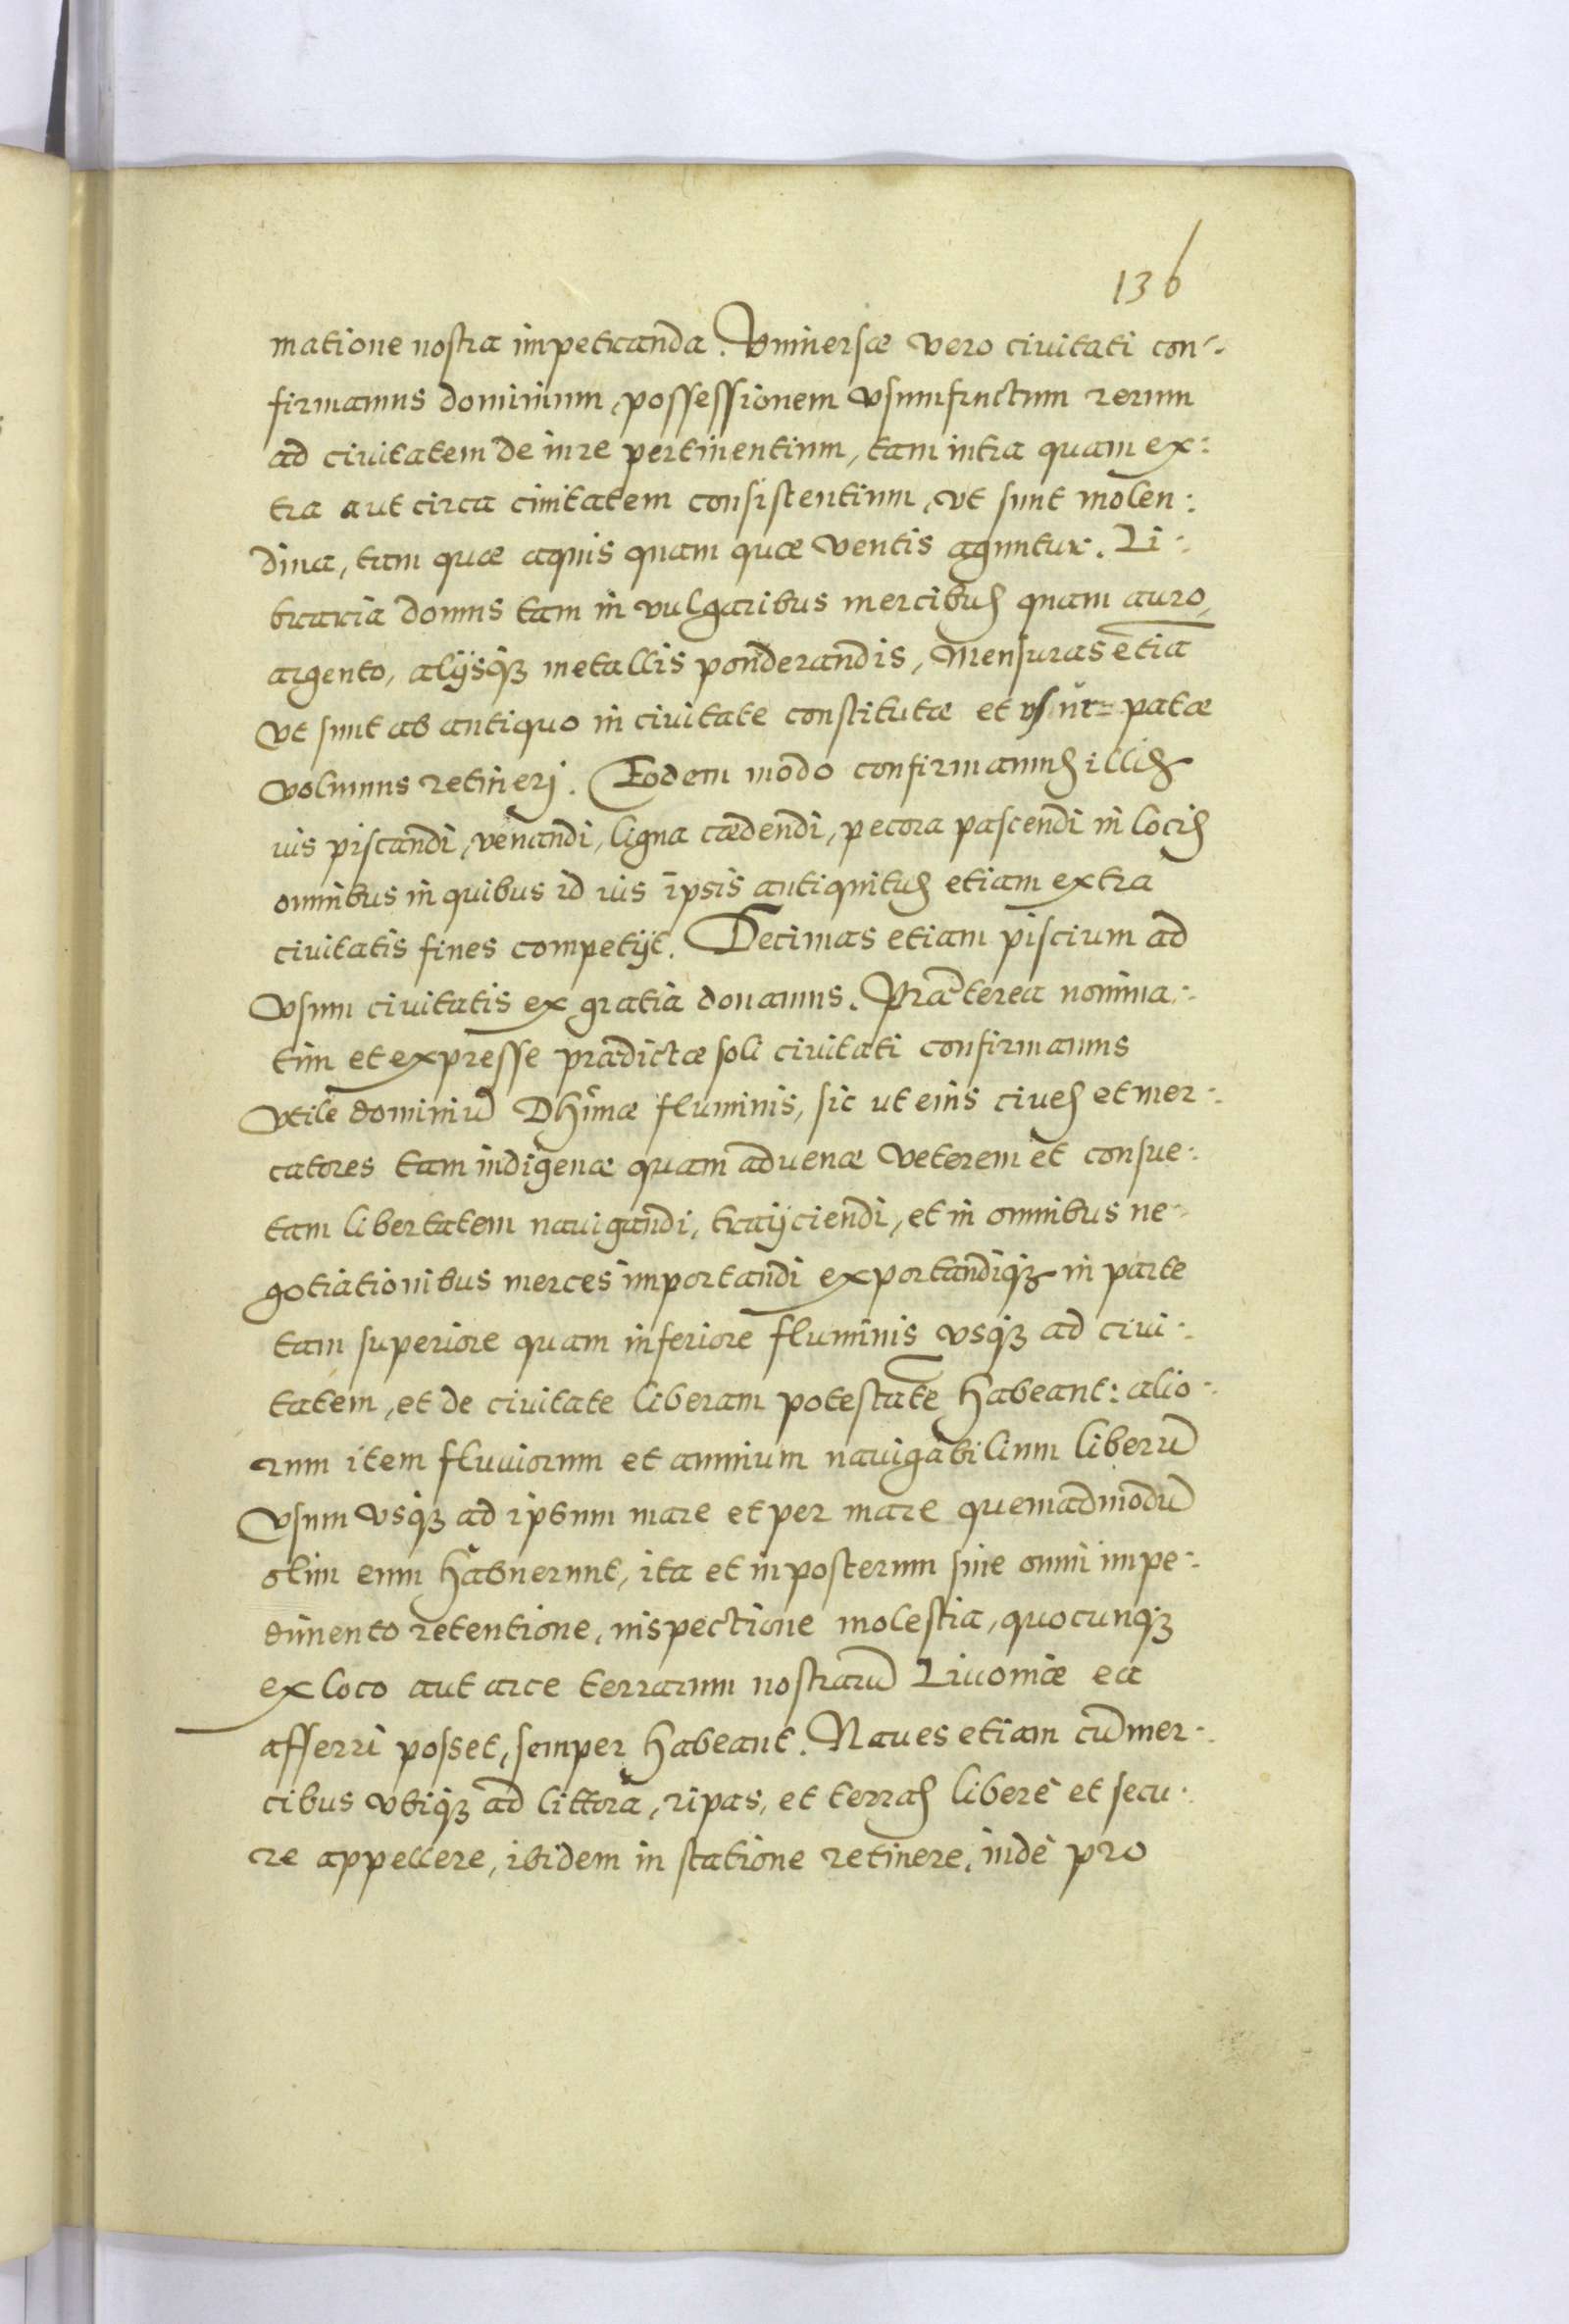 136
matione nostra impetranda. Vniuersæ vero ciuitati con-
firmamus dominium, possessionem vsumfructum rerum
ad ciuitatem de iure pertinentium, tam intra quam ex:
tra aut circa ciuitatem consistentium, vt sunt molen:
dina, tam quæ aquis quam quæ ventis aguntur. Li-
braria domus tam in vulgaribus mercibus quam auro,
argento, alijsq; metallis ponderandis, Mensuras etiā
vt sunt ab antiquo in ciuitate constitutæ et vsur=patæ
volumus retineri. Eodem modo confirmamus illis
ius piscandi, venandi, ligna cædendi, pecora pascendi in locis
omnibus in quibus id ius ipsis antiquitus etiam extra
ciuitatis fines competijt. Decimas etiam piscium ad
vsum ciuitatis ex gratia donamus. Præterea nomina-
tim et expresse prædictæ soli ciuitati confirmamus
vtile dominiū Dhunæ fluminis, sic ut eius ciues et mer-
catores tam indigenæ quam aduenæ veterem et consue-
tam libertatem nauigandi, traijciendi, et in omnibus ne-
gotiationibus merces importandi exportandiq; in parte
tam superiore quam inferiore fluminis vsq; ad ciui-
tatem, et de ciuitate liberam potestatē habeant: alio-
rum item fluuiorum et amnium nauigabilium liberū
vsum vsq; ad ipsum mare et per mare quemadmodū
olim eum habuerunt, ita et in posterum sine omni impe-
dimento retentione, inspectione molestia, quocunq;
ex loco aut arce terrarum nostrarū Liuoniæ ea
afferri posset, semper habeant. Naues etiam cū mer-
cibus vbiq; ad littora, ripas, et terras liberè et secu-
re appellere, ibidem in statione retinere, indè pro